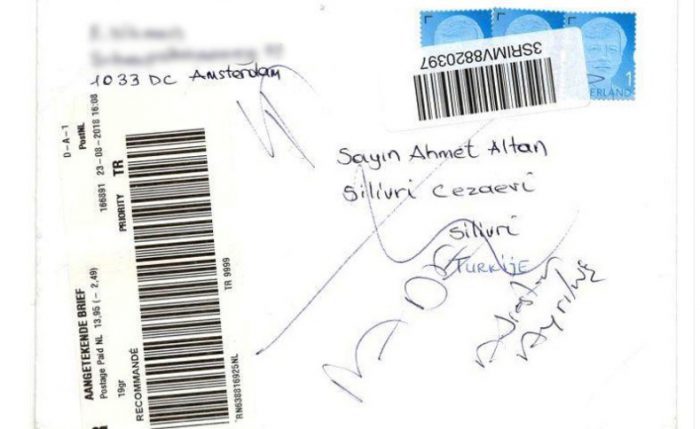 1033 DC Amsterdam
3SRIMV8820397
1
NEDERLAND
Sayın Ahmet Altan
Silivri Cezaevi
Silivri
TURKIJE
Adresten
Ayrılmış
D-A-1
PostNL
166891 23-08-2018 16:08
PRIORITY TR
TR 9999
AANGETEKENDE BRIEF
Postage Paid NL 13,95 (- 2,49)
19gr
RECOMMANDÉ
RN638816925NL
R